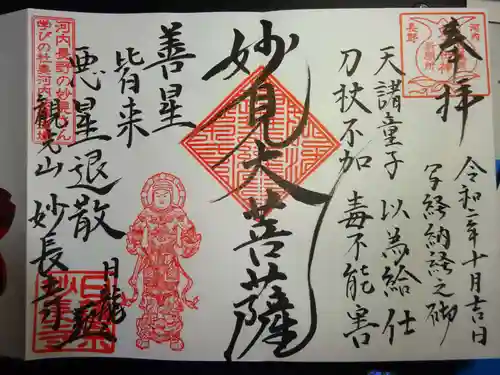 奉拝
河内
長野
祈願所
令和二年十月吉日
写経納経之御
天諸童子 以為給仕
刀杖不加 毒不能害
妙見大菩薩
善星
皆来
悪星退散
日龍
観光山 妙長寺
河内長野の妙見さん
学びの社